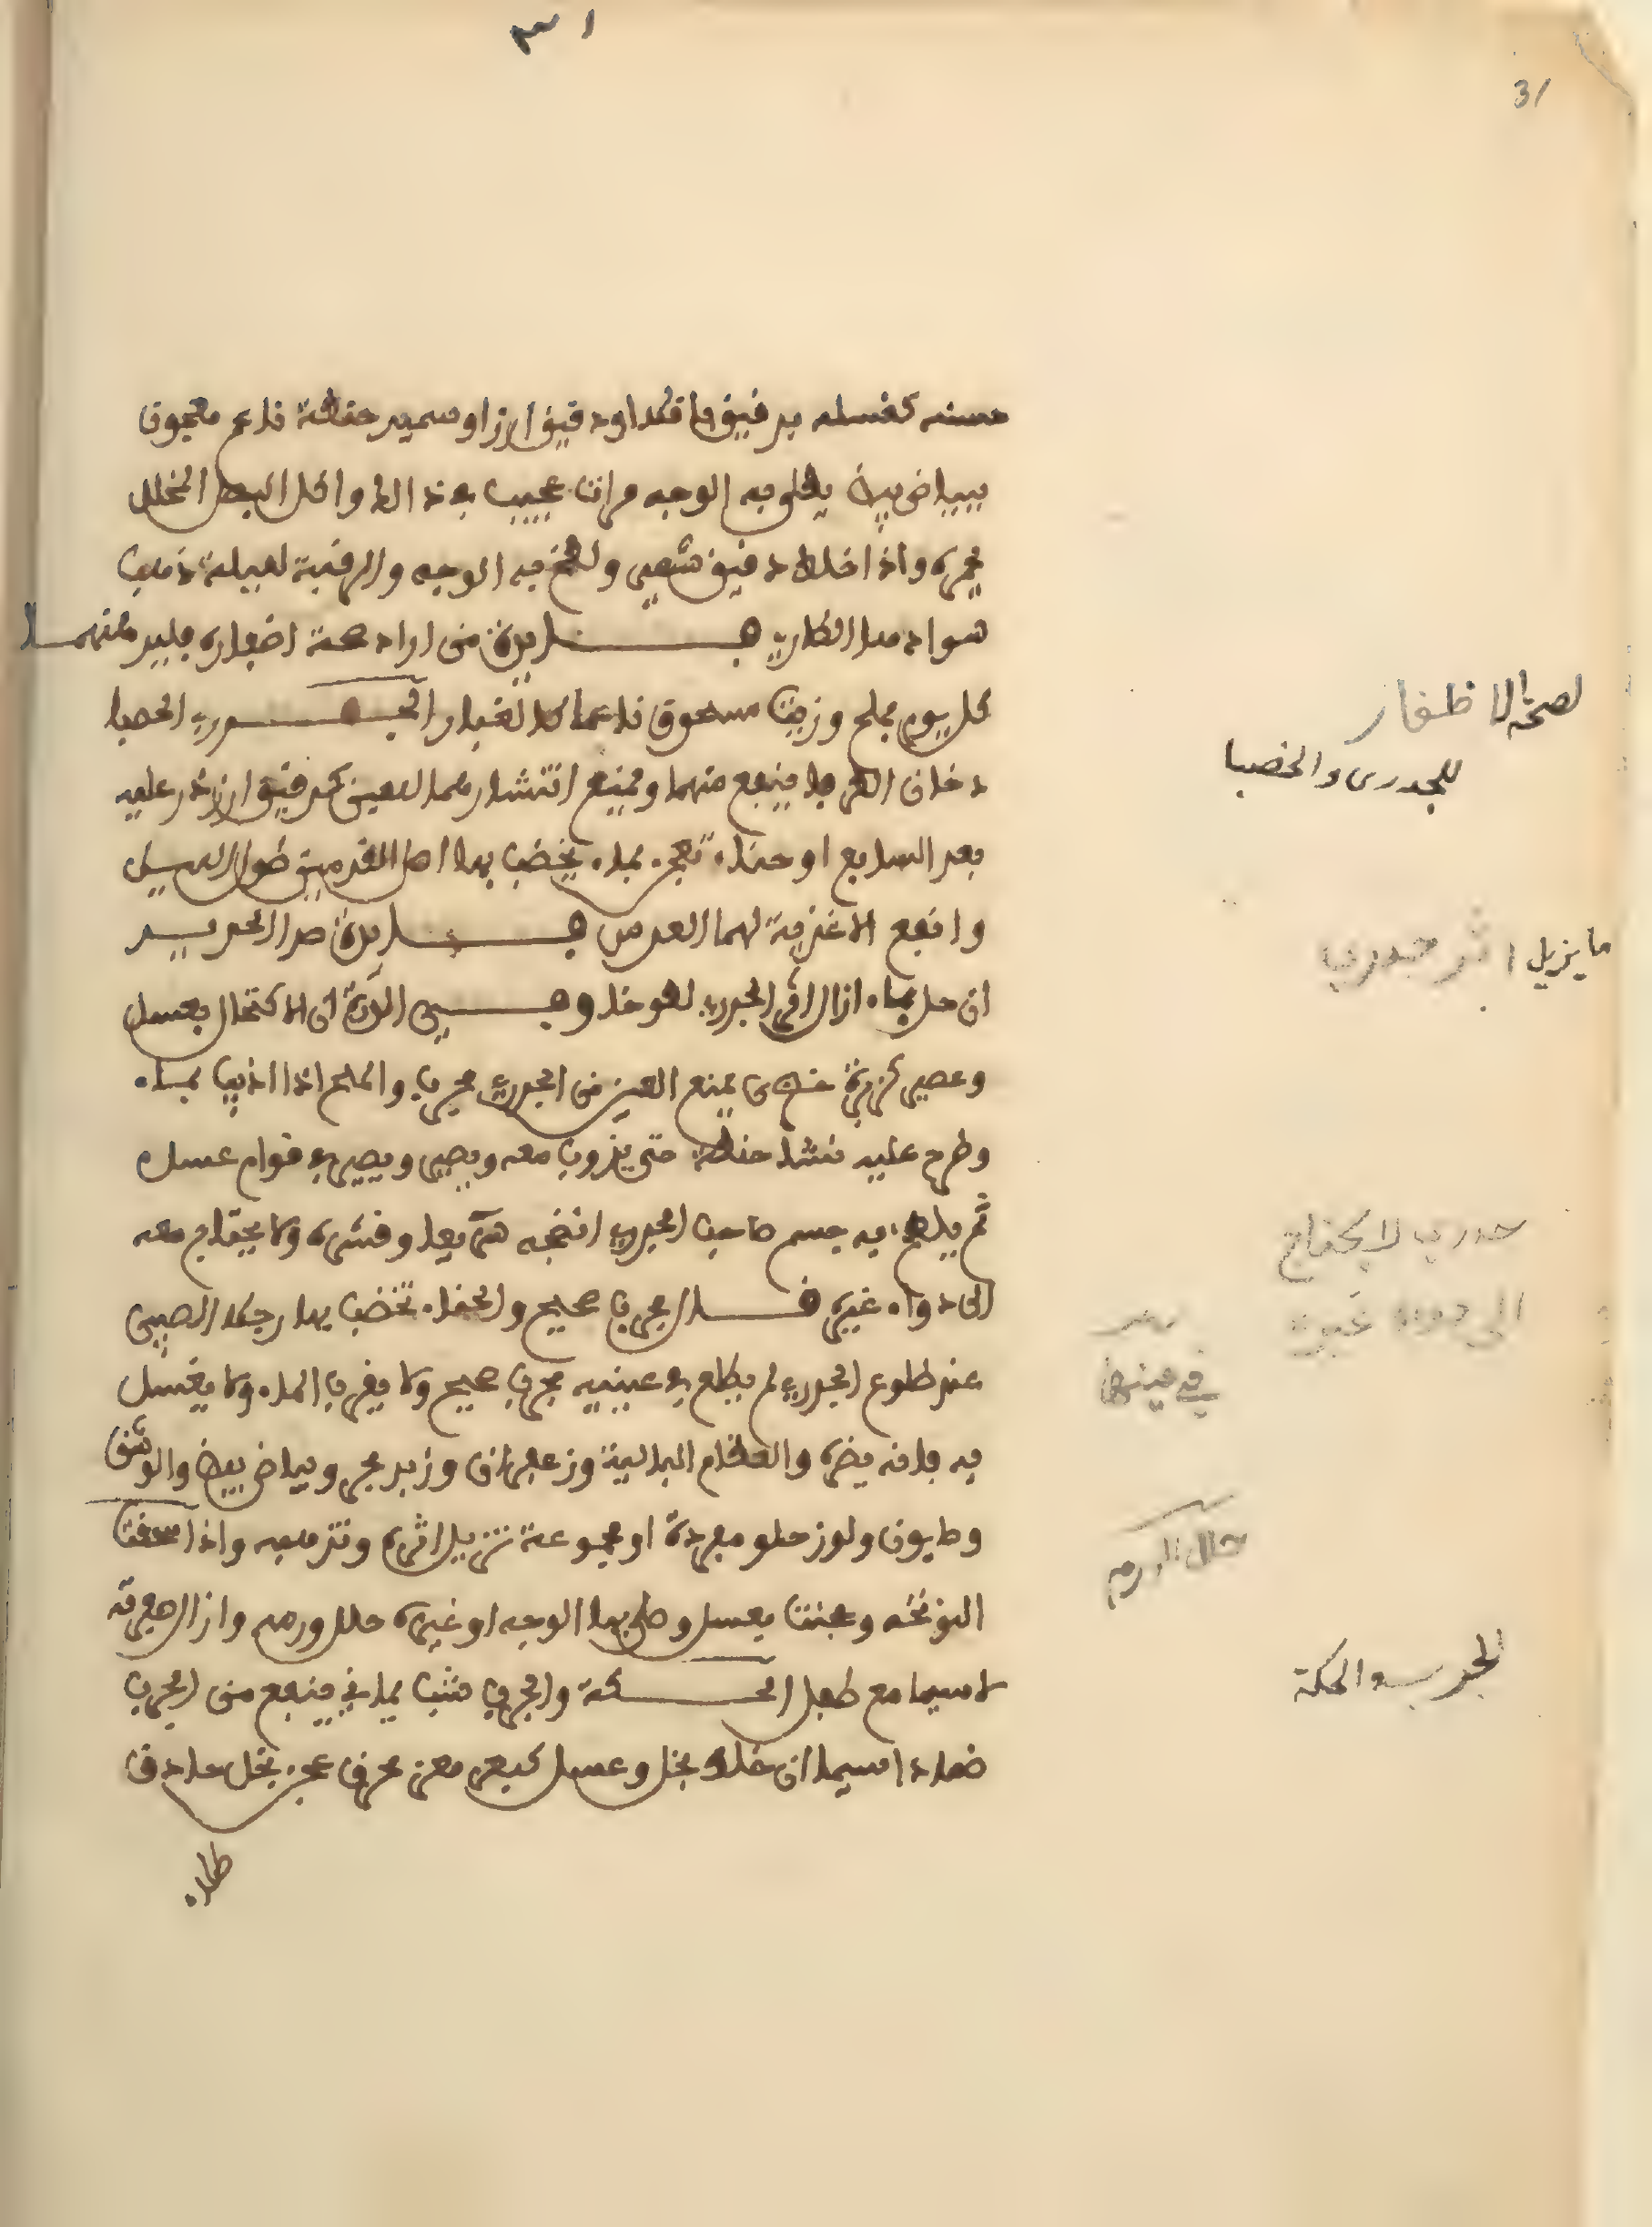 ٣١
31
حسنه كغسله بدقيق باقلا او دقيق ارز او سميد حنطة ناعم معجون
ببياض بيض يطلى به الوجه مرات عجيب في ذالك واكل البصل المخلل
يحمره واذا خلط دقيق شعير ولطخ به الوجه والرقبة لعيلة ذهب
سواد هما الطارى فايدة من اراد صحة اظفاره فليدهنهما
كل يوم بملح وزيت مسحوق ناعما كالغبار الجدري الحصبا
دخان الطرفا ينفع منهما ويمنع انتشارهما للعين كدقيق ارز يذر عليه
بعد السابع او حناء تعجن بماء يخضب بها اصل القدمين طول الليل
وانفع الاغذية لهما العدس فايدة صدا الحديد
ان حل بماء ازال اثر الجدري لطوخا وفي التذكرة ان الاكتحال بعسل
وعصير كزبرة خضرى يمنع العين من الجدري مجرب والملح اذا اذيب بماء
وطرح عليه نشا حنطة حتى يذوب معه ويصير في قوام عسل
ثم يلطخ به جسم صاحب الجدري انضجه سريعا وقشره ولا يحتاج معه
الى دواء غيره قال مجرب صحيح والحناء تخضب بها رجلا الصبي
عند طلوع الجدري لم يطلع في عينيه مجرب صحيح ولا يقرب الماء ولا يغتسل
به فانه يضره والعظام البالية وزعفران وزبد بحر وبياض بيض والوشق
وطيون ولوز حلو مفردة او مجموعة تزيل اثره وتذهبه واذا سحقت
النونخه وعجنت بعسل وطلى بها الوجه او غيره حلل ورمه وازال صفرته
لا سيما مع طفل الحكة والجرب شب يماني ينفع من الجرب
ضمادا سيما ان خلط بخل وعسل كبعر معز محرق عجن بخل حاذق
طلاء
لصحة الاظفار
للجدري والحصبا
ما يزيل اثر جدري
جدري لا يحتاج
الى دواء غيره
في عينيه
حال الورم
الجرب والحكة